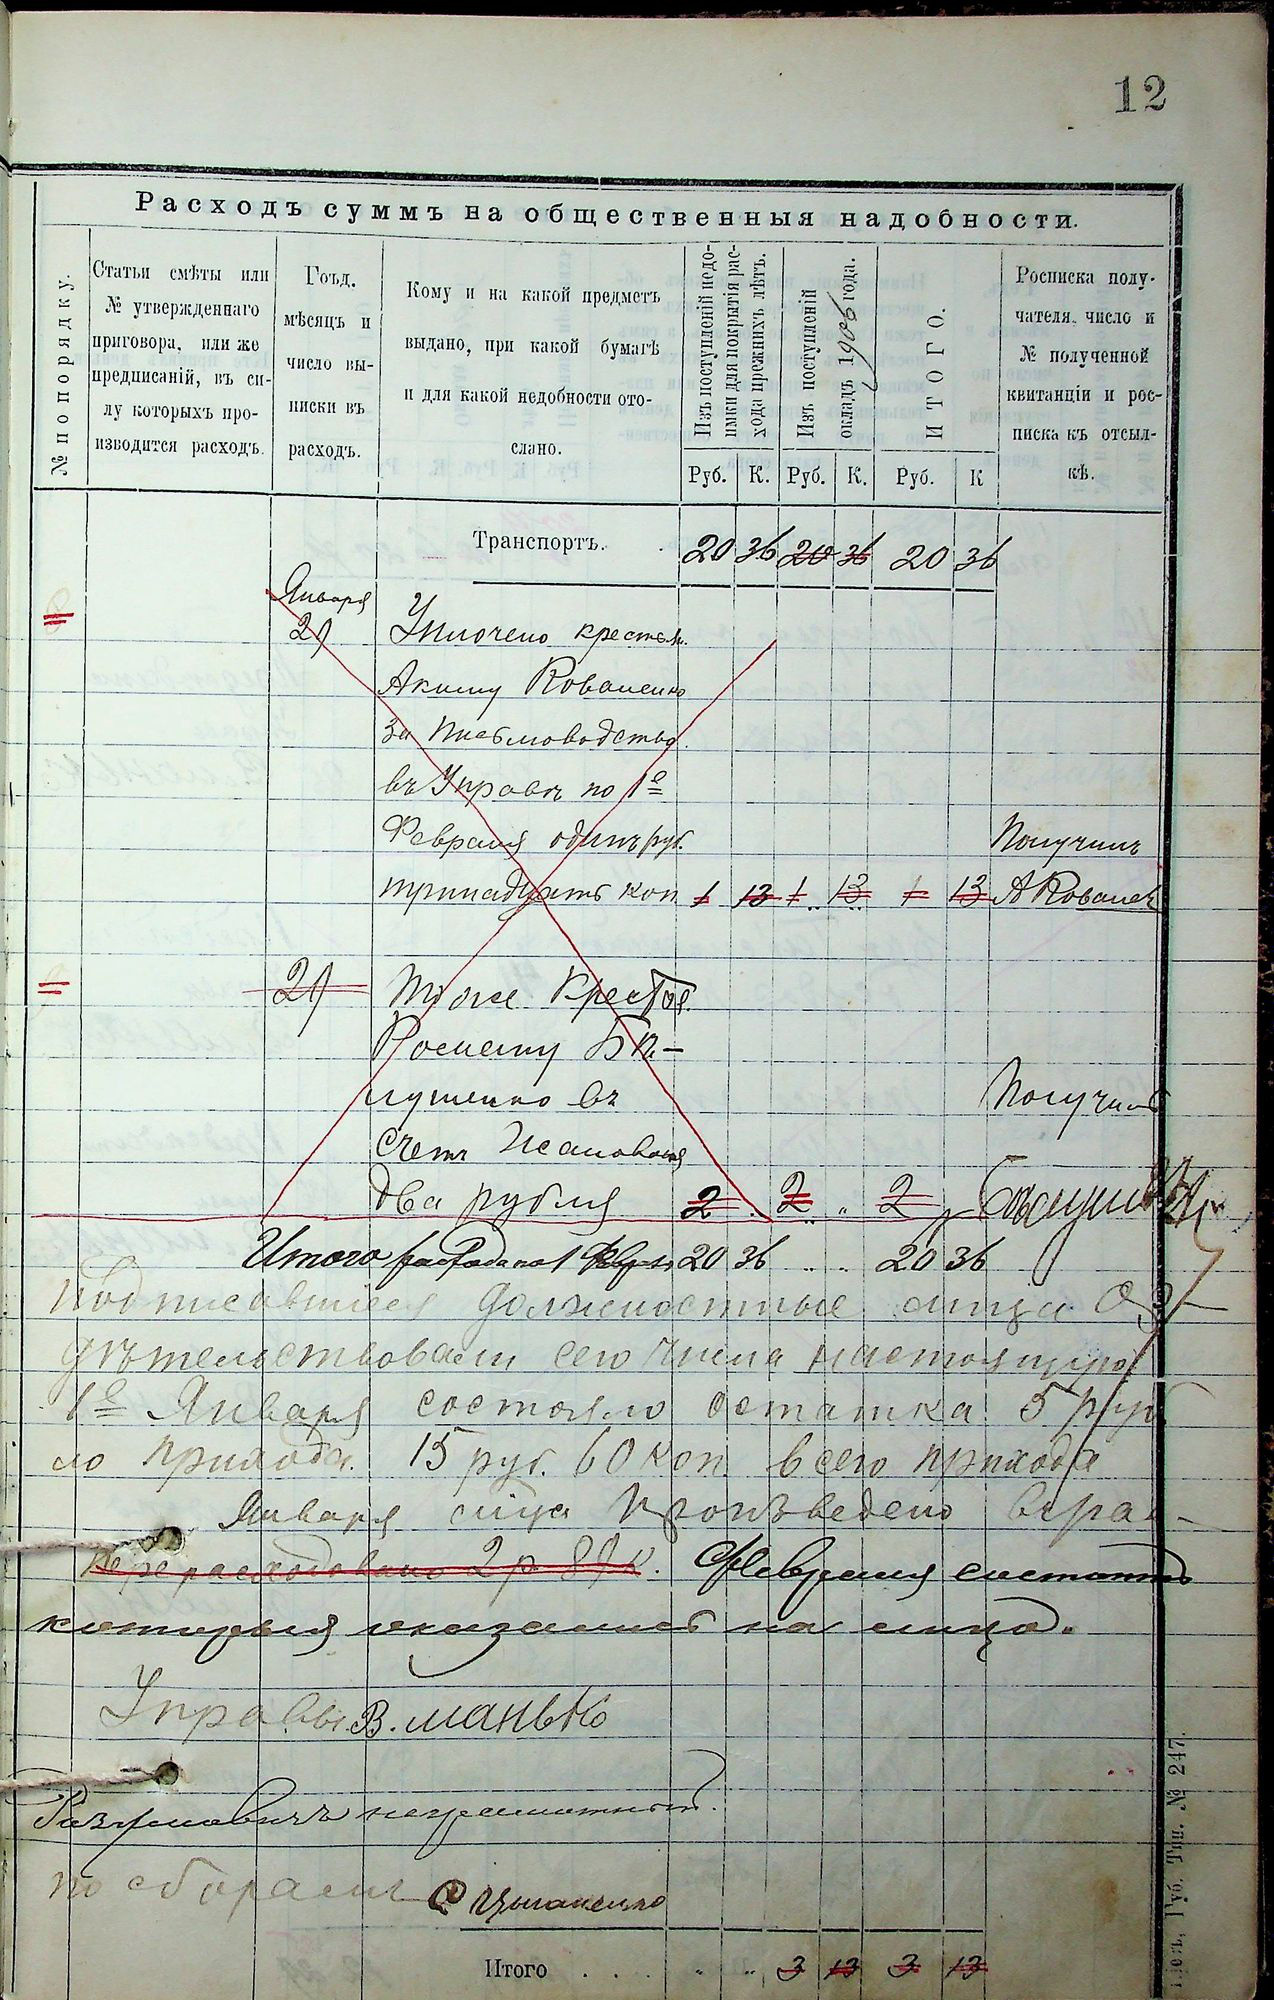 12
Расходъ суммъ на общественныя надобности.
№ по порядку.
Статьи смѣты или
№ утвержденнаго
приговора, или же
предписаній, въ си-
лу которыхъ про-
изводится расходъ.
Гоъд.
мѣсяцъ и
число вы-
писки въ
расходъ.
Кому и на какой предметъ
выдано, при какой бумагѣ
и для какой недобности ото-
слано.
Изъ поступленій недо-
имки для покрытія рас-
хода прежнихъ лѣтъ.
Изъ поступленій
окладъ 1906 года.
ИТОГО.
Росписка полу-
чателя. число и
№ полученной
квитанціи и рос-
писка къ отсыл-
кѣ.
Руб. К. Руб. К. Руб. К
Транспортъ. 20 36 20 36 20 36
Января
29 Уплочено крестья.
Акиму Коваленко
за письмоводство
въ Управѣ по 1е
Февраля одинъ руб. Получилъ
тринадцать коп 1 13 1 13 1 13 А Ковален
29 Тоже Крестья.
лушенко въ Получилъ
счетъ Жалованья
два рубля 2 2 2
Итого расхода по 1 Февр. 20 36 20 36
Подписавшіеся должностные лица
дѣтельствовали сего числа настоящую
1е Января состояло остатка 5 руб
ло прихода. 15 руб. 60 коп. всего прихода
Января сего произведено
перерасходовано 2 р 89 к. Февраля состоитъ
которыя оказались на лицо.
Управы. В. Манько
неграмотный.
по сборамъ Цыганенко
Итого . . . . 3 13 3 13
Губ. Тип. № 247.